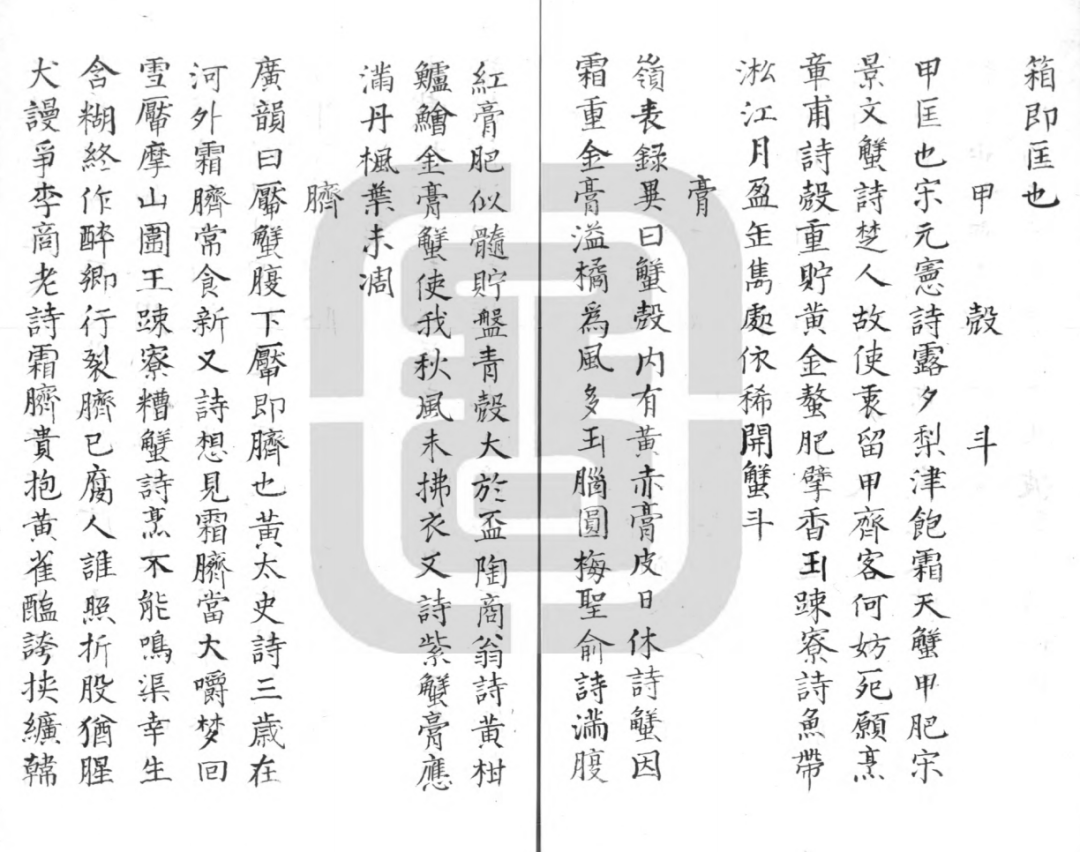 箱即匡也
甲　殼　斗
甲匡也宋元憲詩露夕梨津飽霜天蟹甲肥宋
景文蟹詩楚人故使裹留甲齊客何妨死願烹
章甫詩殼重貯黄金螯肥擘香玉踈寮詩魚帶
淞江月盈缶雋處依稀開蟹斗
膏
嶺表録異曰蟹殼内有黄赤膏皮日休詩蟹因
霜重金膏溢橘為風多玉腦圓梅聖俞詩滿腹
紅膏肥似髓貯盤青殼大於盃陶商翁詩黄柑
鱸鱠金膏蟹使我秋風未拂衣又詩紫蟹膏應
滿丹楓葉未凋
臍
廣韻曰䵶蟹腹下䵶即臍也黄太史詩三歳在
河外霜臍常食新又詩想見霜臍當大嚼夢回
雪䵶摩山圍王踈寮糟蟹詩烹不能鳴渠幸生
含糊終作醉卿行裂臍已腐人誰照折股猶腥
犬謾爭李商老詩霜臍貴抱黄雀醢誇挟纊韓